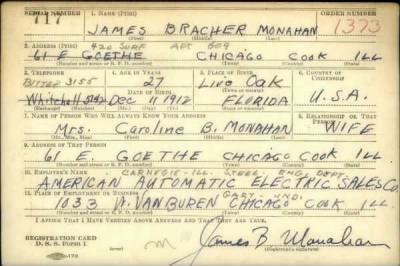 SERIAL NUMBER 1. NAME (Print) ORDER NUMBER
JAMES BRACHER MONAHAN 1373
(First) (Middle) (Last)
2. ADDRESS (Print) 420 SURF APT 609
61 E GOETHE CHICAGO COOK ILL
(Number and street or R. F. D. number) (Town) (County) (State)
3. TELEPHONE 4. AGE IN YEARS 5. PLACE OF BIRTH 6. COUNTRY OF CITIZENSHIP
3155 27 Live Oak
DATE OF BIRTH (Town or county)
Whitehall Dec 11 1912 FLORIDA U.S.A.
(Exchange) (Number) (Mo.) (Day) (Yr.) (State or country)
7. NAME OF PERSON WHO WILL ALWAYS KNOW YOUR ADDRESS 8. RELATIONSHIP OF THAT PERSON
Mrs. Caroline B. MONAHAN WIFE
(Mr., Mrs., Miss) (First) (Middle) (Last)
9. ADDRESS OF THAT PERSON
61 E. GOETHE CHICAGO COOK ILL.
(Number and street or R. F. D. number) (Town) (County) (State)
10. EMPLOYER'S NAME CARNEGIE-ILL. STEEL ENG. DEPT
AMERICAN AUTOMATIC ELECTRIC SALES CO.
11. PLACE OF EMPLOYMENT OR BUSINESS GARY IND.
1033 W. VAN BUREN CHICAGO COOK ILL
(Number and street or R. F. D. number) (Town) (County) (State)
I AFFIRM THAT I HAVE VERIFIED ABOVE ANSWERS AND THAT THEY ARE TRUE.
REGISTRATION CARD
D. S. S. Form 1
James B Monahan